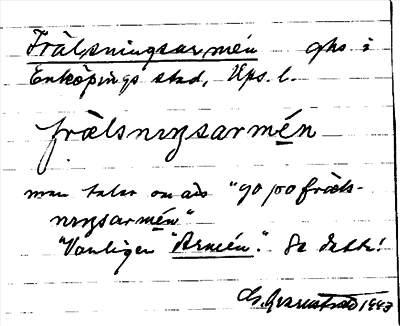 Frälsningsarmén ghs i
Enköpings stad, Ups. l.
frälsnıŋsarmén
man talar om att "go po fräls-
nıŋsarmén"
"Vanligen "Armén". Se detta!
1943